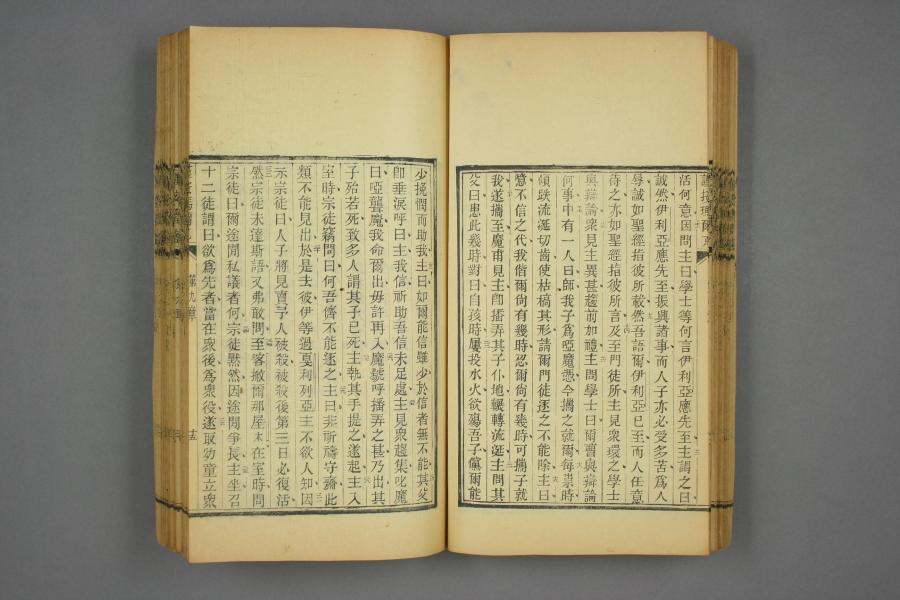 活何意因問主曰學士等何言伊利亞應先至主謂之曰
誠然伊利亞應先至振興諸事而人子亦必受多苦爲人
辱誠如聖經指彼所載然吾語爾伊利亞已至而人任意
待之亦如聖經指彼所言及至門徒所主見衆環之學士
與辯論衆見主異甚趨前如禮主問學士曰爾曹與辯論
何事中有一人曰師我子爲啞魔憑今攜之就爾每祟時
傾跌流涎切齒使枯槁其形請爾門徒逐之不能除主曰
噫不信之代我偕爾尚有幾時忍爾尚有幾時可攜子就
我遂攜至魔甫見主卽播弄其子仆地輾轉流涎主問其
父曰患此幾時對曰自孩時屢投水火欲殤吾子儻爾能
少挽憫而助我主曰如爾能信雖少於信者無不能其父
卽垂淚呼曰主我信祈助吾信未足處主見衆趨集叱魔
曰啞聾魔我命爾出毋許再入魔號呼播弄之甚乃出其
子殆若死致多人謂其子已死主執其手提之遂起主入
室時宗徒竊問曰何吾儕不能逐之主曰非祈禱守齋此
類不能見出於是去彼伊等過戛利列亞主不欲人知因
示宗徒曰人子將見賣予人被殺被殺後第三日必復活
然宗徒未達斯語又弗敢問至客撇爾那屋末在室時問
宗徒曰爾途間私議者何宗徒默然因途間爭長主坐召
十二徒謂曰欲爲先者當在衆後爲衆役遂取幼童立衆
第九章